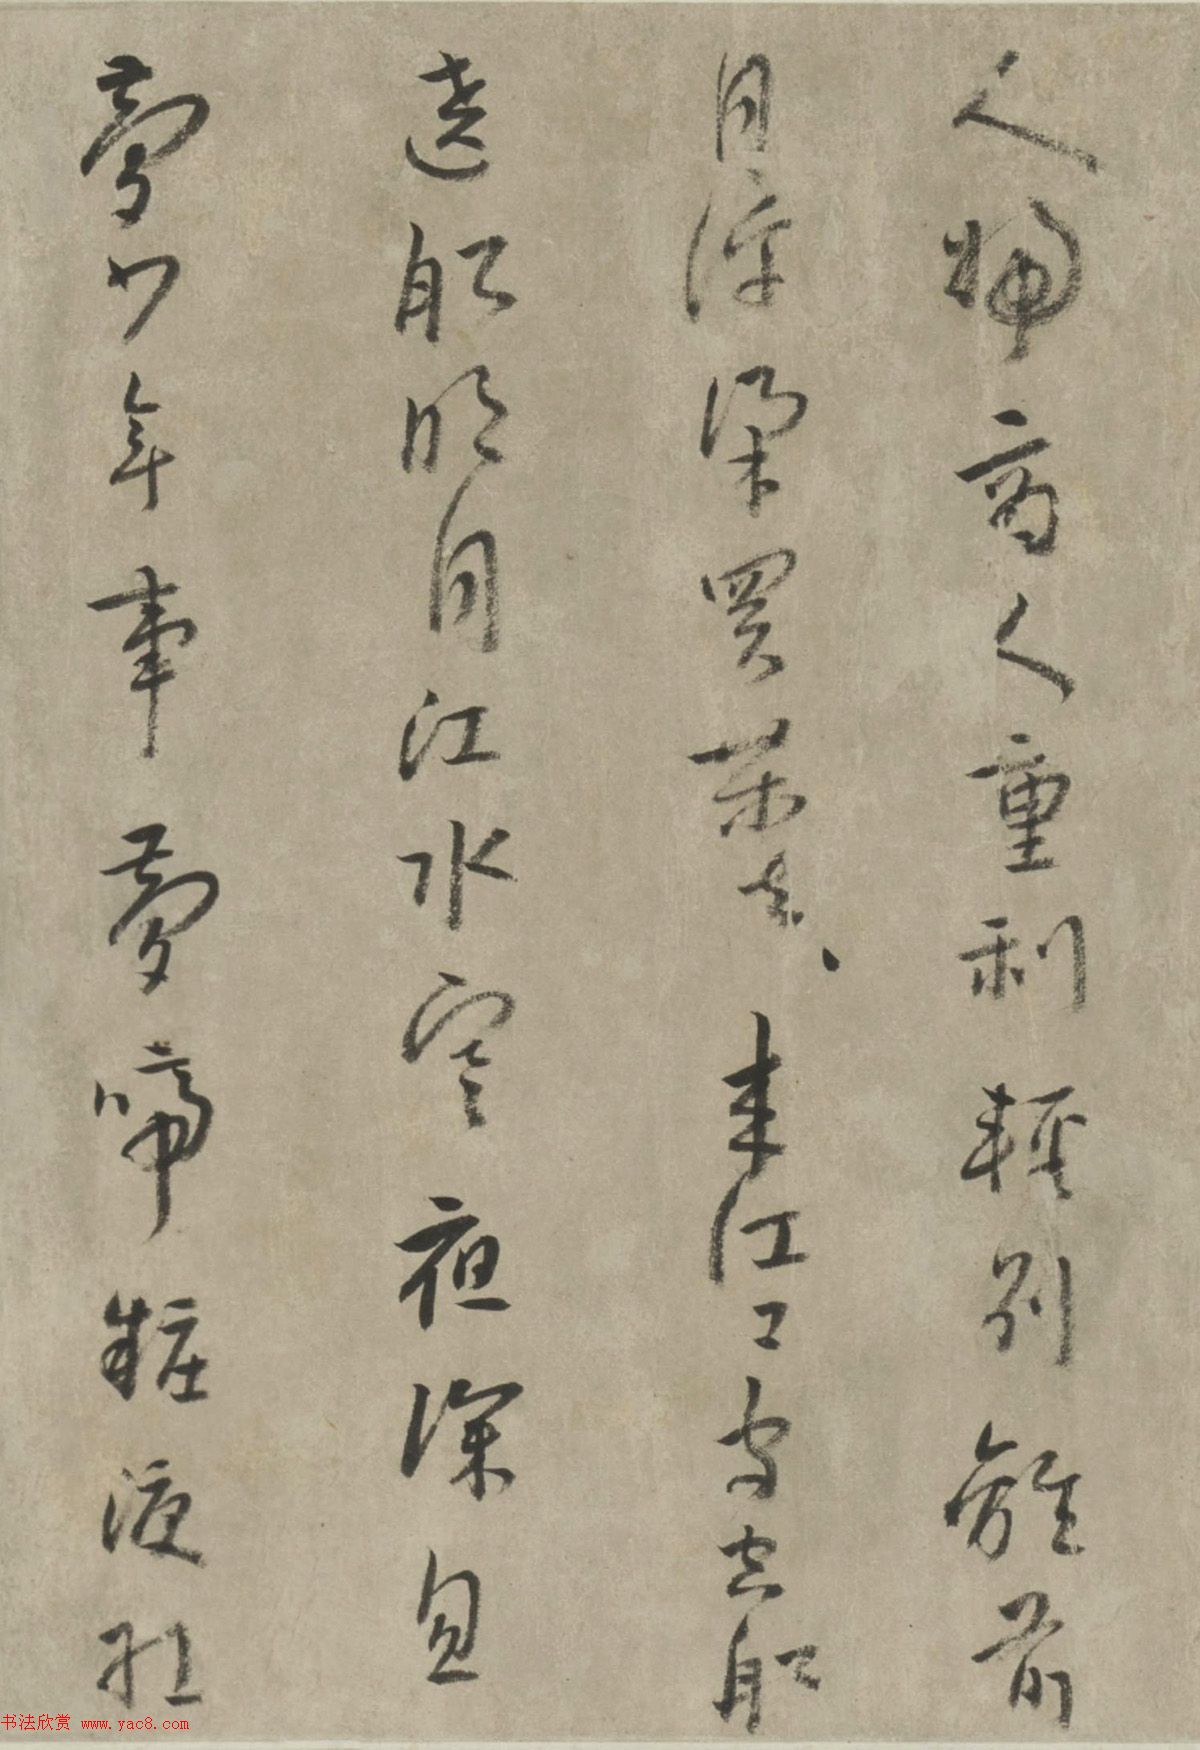 人婦商人重利輕别離前
月浮梁買茶去、来江口守空船
遶船明月江水寒夜深忽
夢少年事夢啼粧淚紅
书法欣赏 www.yac8.com